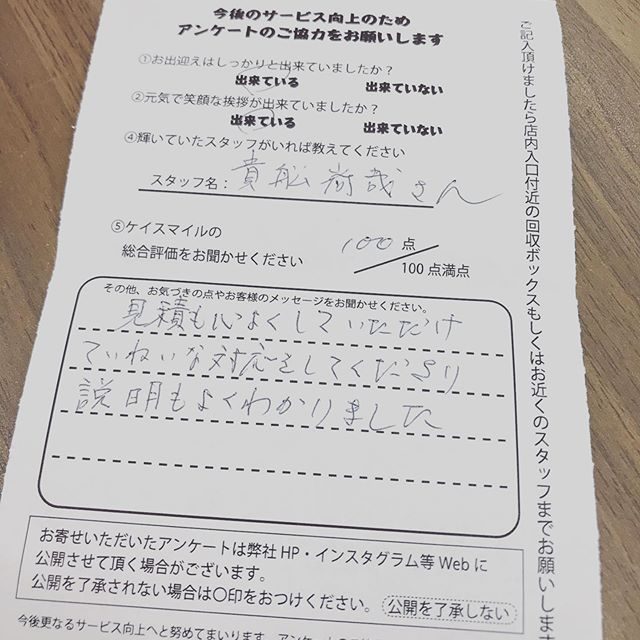 今後のサービス向上のため
アンケートのご協力をお願いします
①お出迎えはしっかりと出来ていましたか？
出来ている 出来ていない
②元気で笑顔な挨拶が出来ていましたか？
出来ている 出来ていない
④輝いていたスタッフがいれば教えてください
スタッフ名： 貴船 哉さん
⑤ケイスマイルの
総合評価をお聞かせください
100 点
100 点満点
その他、お気づきの点やお客様のメッセージをお聞かせください。
見積も心よくしていただけ
ていねいな対応をしてくださり
説明もよくわかりました
お寄せいただいたアンケートは弊社 HP・インスタグラム等 Web に
公開させて頂く場合がございます。
公開を了承されない場合は〇印をおつけください。 公開を了承しない
今後更なるサービス向上へと努めてまいります。
ご記入頂けましたら店内入口付近の回収ボックスもしくはお近くのスタッフまでお願いします